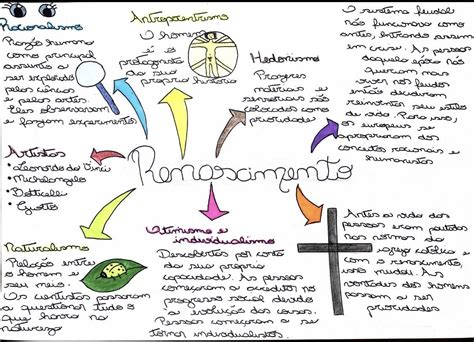 Racionalismo
Razão humana
como principal
assunto a
ser explorado
pelas ciências
e pelas artes.
Eles observavam
e faziam experimentos
Antropocentrismo
O homem
é o
protagonista
da sua
própria história
Hedonismo
Prazeres
materiais e
sensoriais são
colocados como
prioridade
O sistema feudal
não funcionava como
antes, entrando assim
em crise. As pessoas
daquela época não
queriam mais
viver nos feudos
então decidiram
reinventar seu estilo
de vida. Para isso,
os europeus se
apropriaram dos
conceitos racionais e
humanistas
Artistas
• Leonardo da Vinci
• Michelangelo
• Botticelli
• Giotto
Renascimento
Naturalismo
Relação entre
o homem e
seu meio.
Os cientistas passaram
a questionar tudo o
que havia na
natureza
Otimismo e
individualismo
Descobertas por conta
da sua própria
capacidade. As pessoas
começaram a acreditar no
progresso social devido
a evolução das coisas.
Pessoas começaram a se
tornar individualistas.
Antes a vida das
pessoas eram pautadas
nas normas da
igreja católica e
com o renascimento,
isso mudou. As
vontades dos homens
passam a ser
prioridades